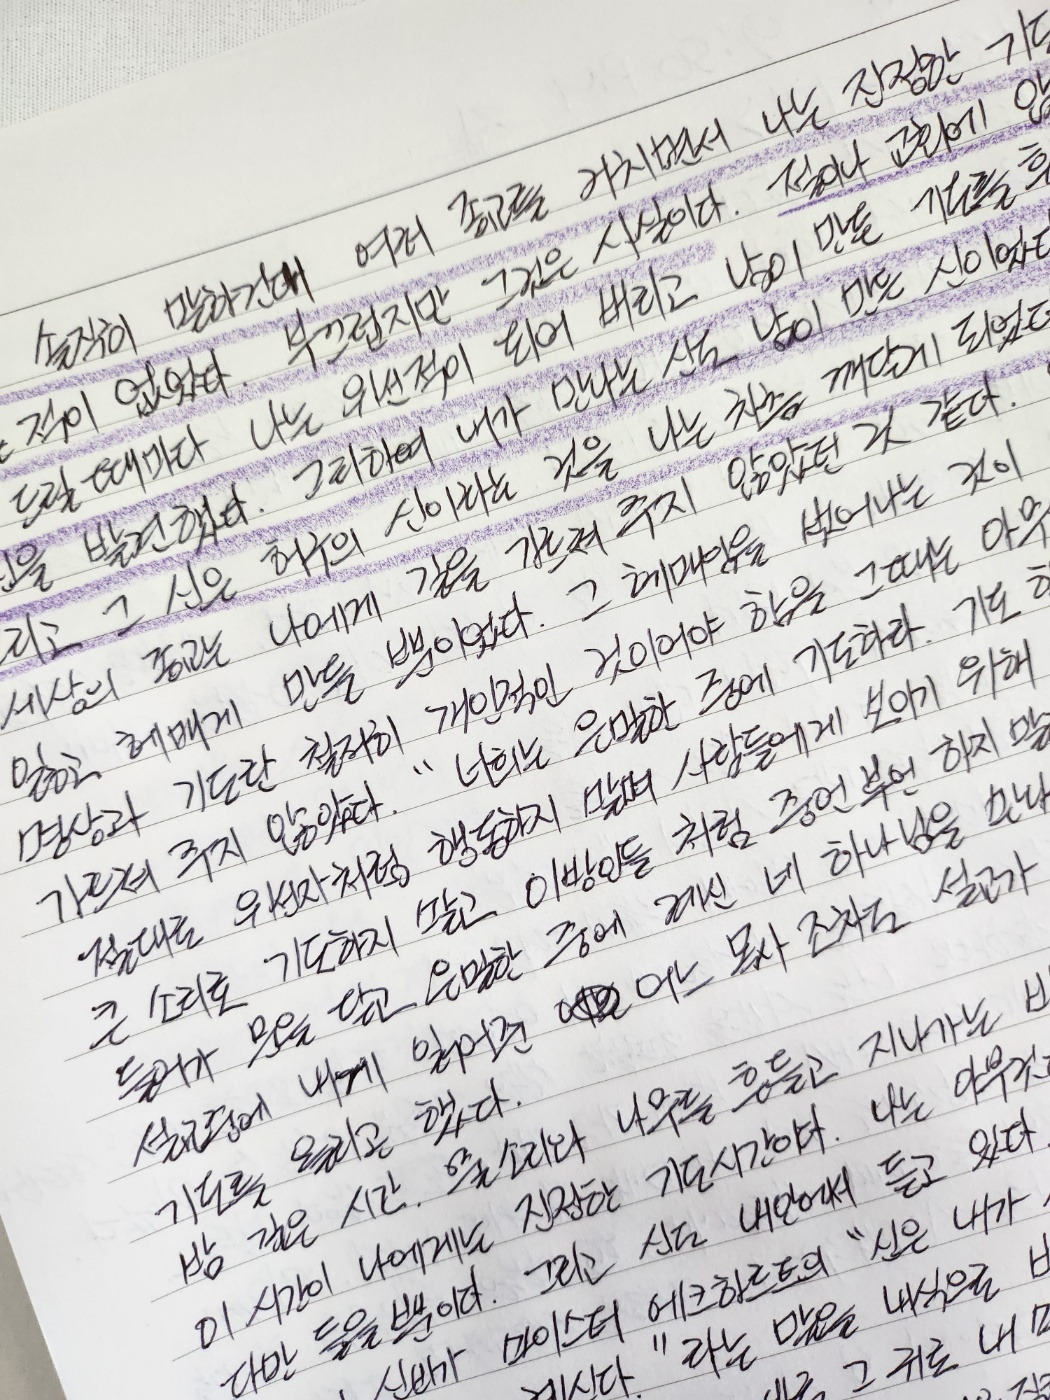 솔직히 말하건대 여러 종교를 거치면서 나는 진정한
적이 없었다. 부끄럽지만 그것은 사실이다. 절이나 교회에
드릴 때마다 나는 위선적이 되어 버리고 남이 만든 기도를
발견했다. 그리하여 내가 만나는 신도 남이 만든 신이었다
그 신은 허구의 신이라는 것을 나는 차츰 깨닫게 되었다
세상의 종교는 나에게 길을 가르쳐 주지 않았던 것 같다.
잃고 헤매게 만들 뿐이었다. 그 헤매임을 벗어나는 것이
명상과 기도란 철저히 개인적인 것이어야 함을 그때는
가르쳐 주지 않았다. "너희는 은밀한 중에 기도하라. 기도
절대로 위선자처럼 행동하지 말며 사람들에게 보이기 위해
큰 소리로 기도하지 말고 이방인들 처럼 중언부언 하지
들어가 문을 닫고 은밀한 중에 계신 네 하나님을
설교점에 내게 읽어준 어느 목사 조차도 설교가
기도를 올리곤 했다.
밤 깊은 시간. 물소리와 나무를 흔들고 지나가는
이 시간이 나에게는 진정한 기도시간이다. 나는
다만 들을 뿐이다. 그리고 신도 내 안에서 듣고 있다.
신비가 마이스터 에크하르트의 "신은 내가
계신다." 라는 말을 내식으로
그 귀로 내